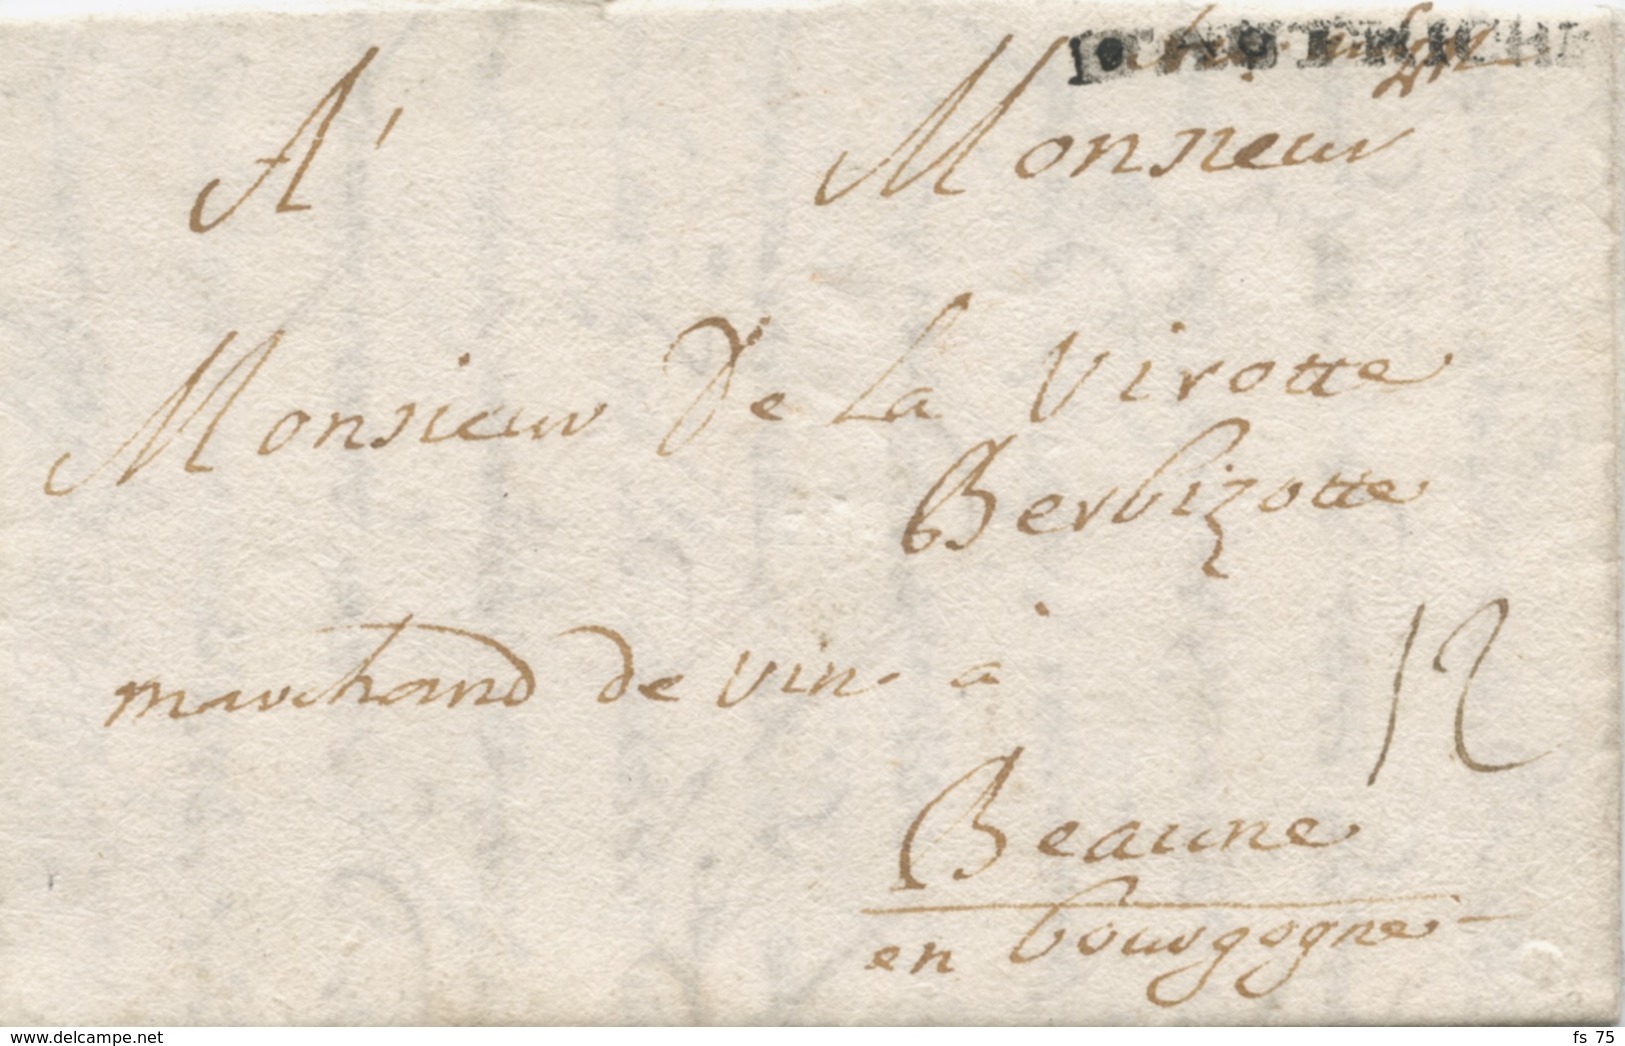 D'AUTRICHE
A' Monsieur
Monsieur De La Virotte
Berbizotte
marchand de vin. a
12
Beaune
en bourgogne
www.delcampe.net
fs 75